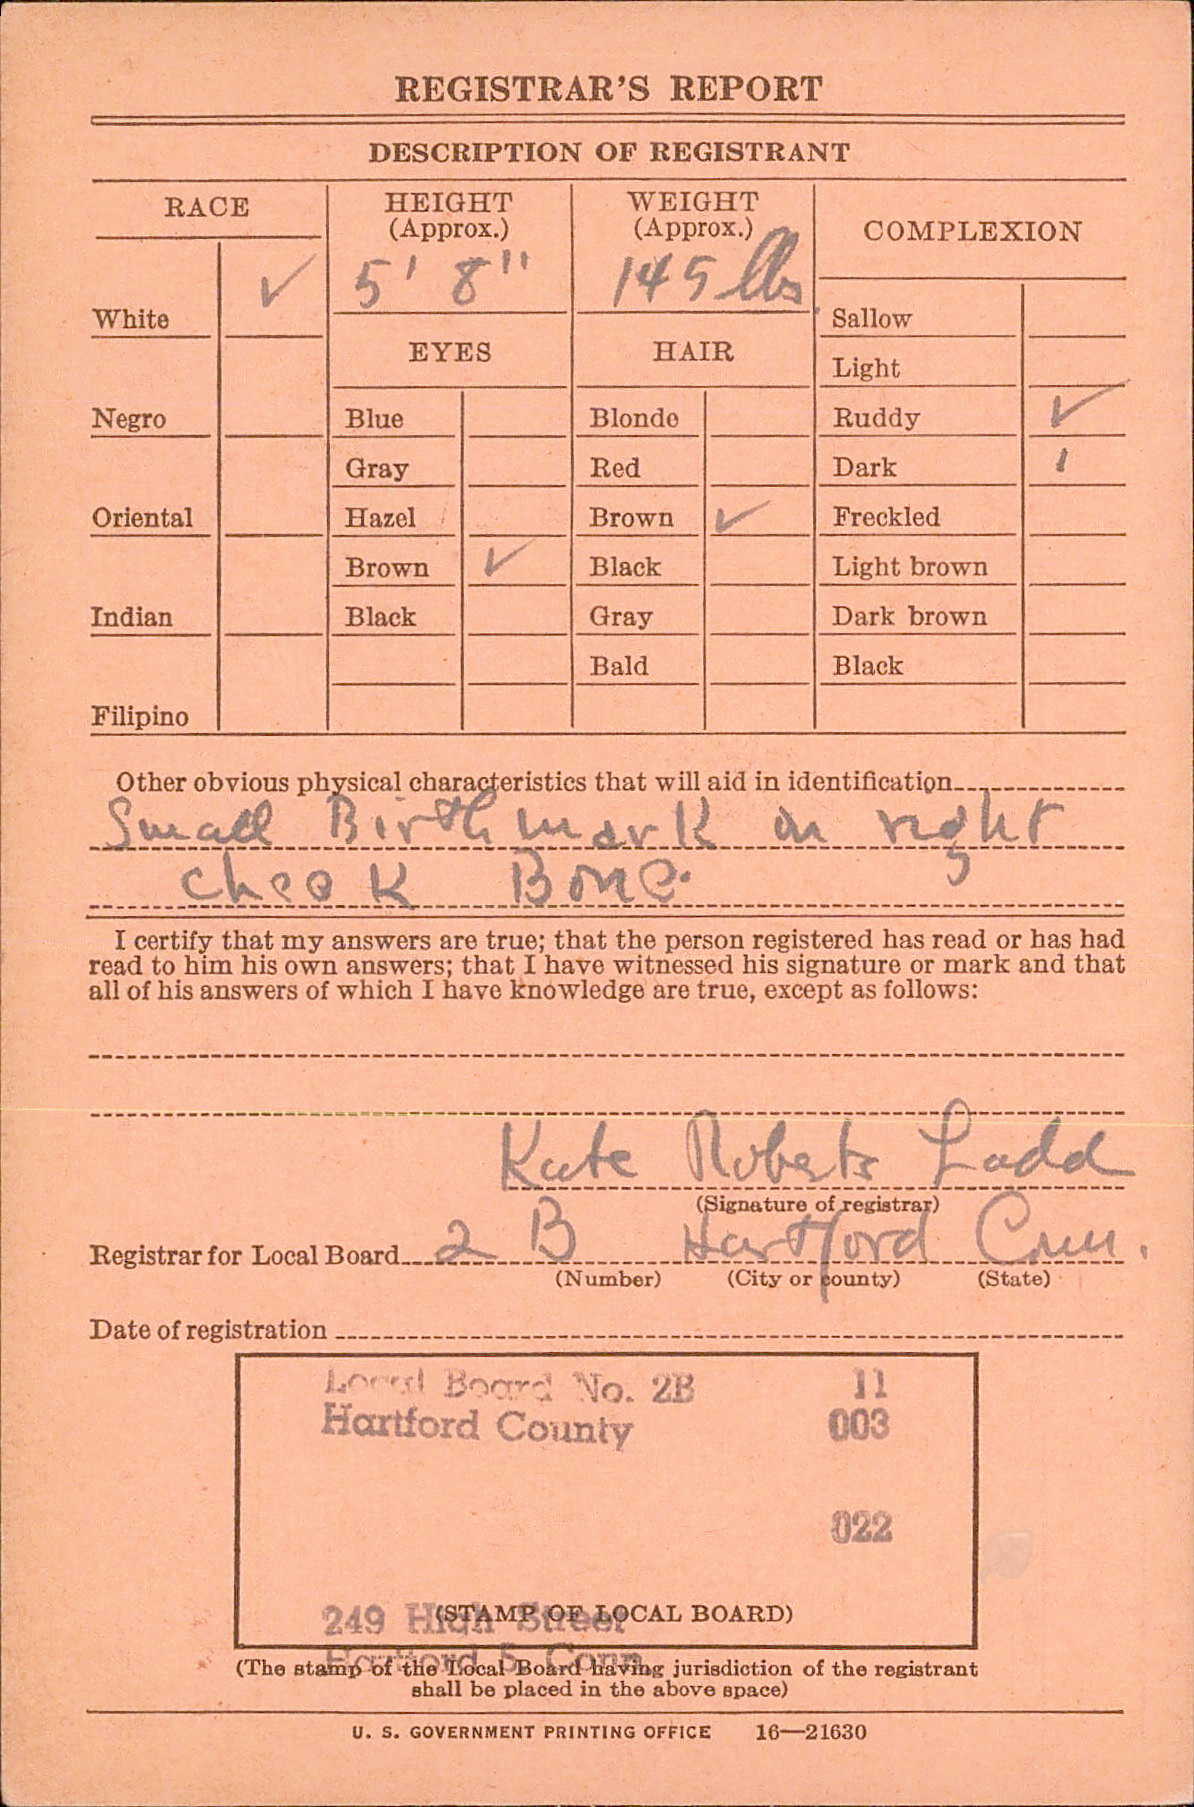 REGISTRAR'S REPORT
DESCRIPTION OF REGISTRANT
RACE
White ✓
Negro
Oriental
Indian
Filipino
HEIGHT
(Approx.)
5' 8"
EYES
Blue
Gray
Hazel
Brown ✓
Black
WEIGHT
(Approx.)
145 lbs
HAIR
Blonde
Red
Brown ✓
Black
Gray
Bald
COMPLEXION
Sallow
Light
Ruddy ✓
Dark
Freckled
Light brown
Dark brown
Black
Other obvious physical characteristics that will aid in identification
Small Birth mark on right
cheek Bone.
I certify that my answers are true; that the person registered has read or has had
read to him his own answers; that I have witnessed his signature or mark and that
all of his answers of which I have knowledge are true, except as follows:
Kate Roberts Ladd
(Signature of registrar)
Registrar for Local Board 2 B Hartford Conn.
(Number) (City or county) (State)
Date of registration
Local Board No. 2B 11
Hartford County 003
022
249 High Street
(STAMP OF LOCAL BOARD)
Hartford 5, Conn.
(The stamp of the Local Board having jurisdiction of the registrant
shall be placed in the above space)
U. S. GOVERNMENT PRINTING OFFICE 16—21630